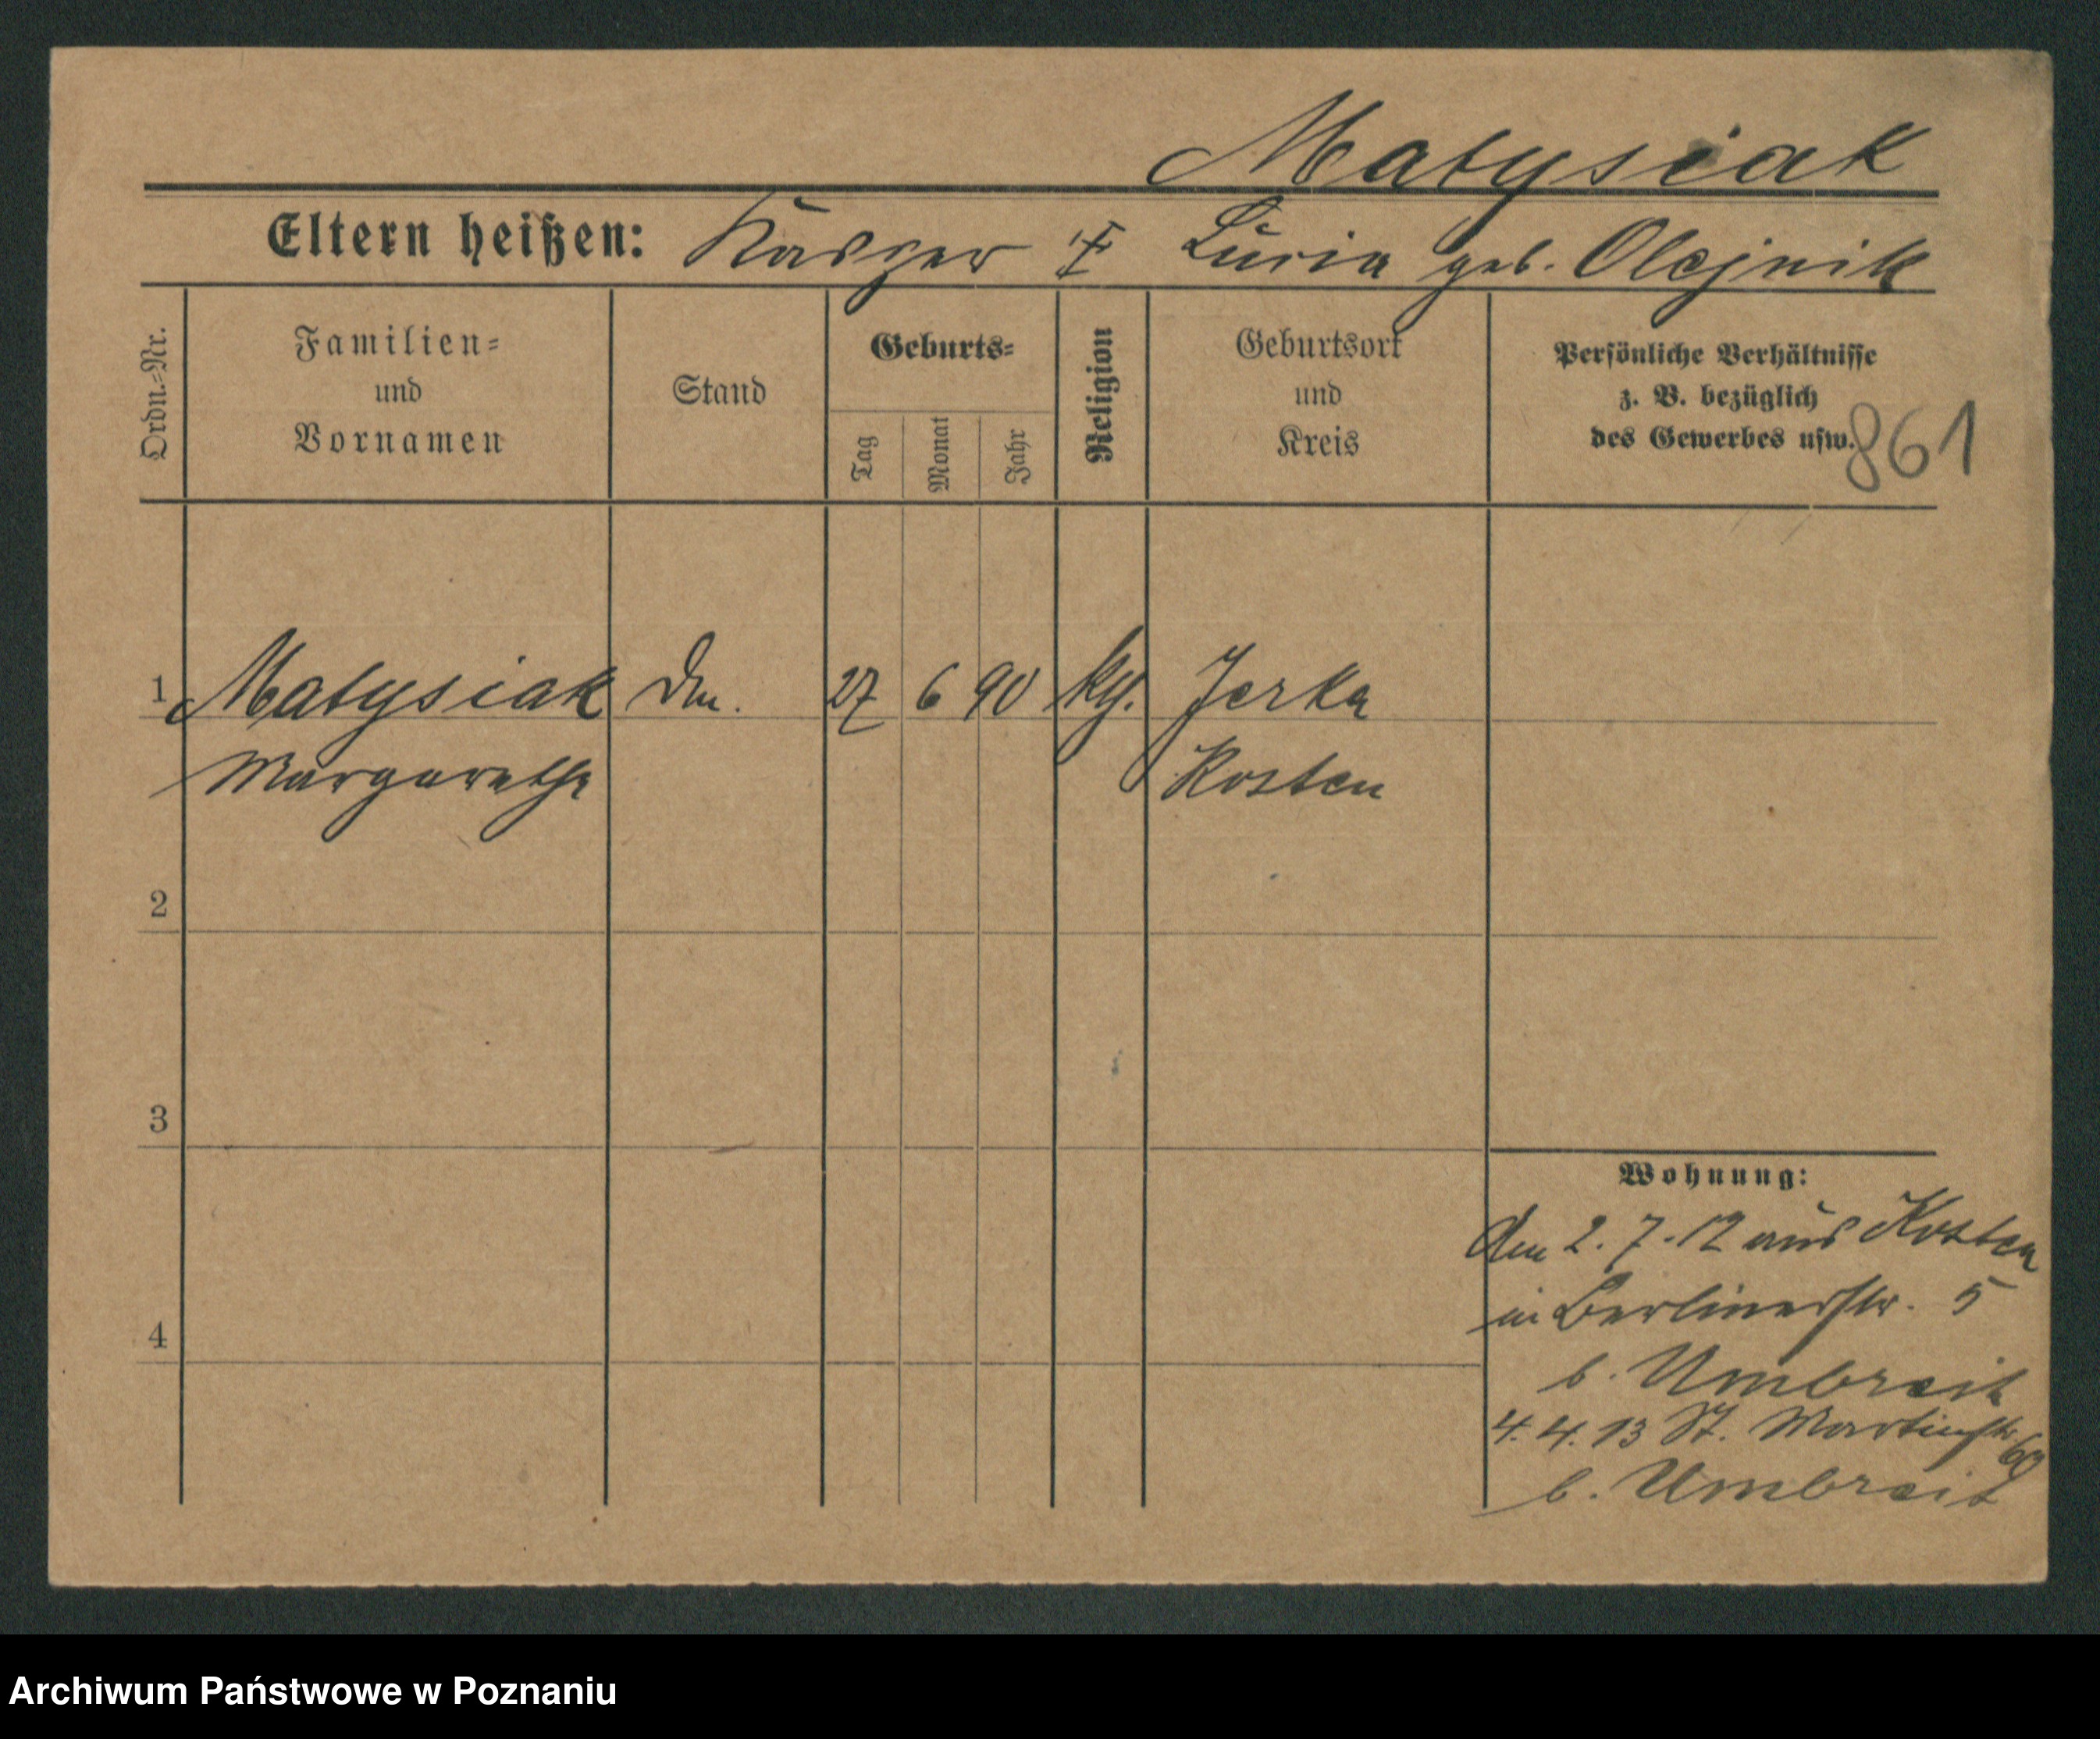 Matysiak
Eltern heißen: Kasper ‡ Lucia geb. Olejnik
Ordn.=Nr.
Familien=
und
Vornamen
Stand
Geburts=
Tag
Monat
Jahr
Religion
Geburtsort
und
Kreis
Persönliche Verhältnisse
z. B. bezüglich
des Gewerbes usw.
861
1 Matysiak 27 6 90 Jerka
Margarethe Kosten
2
3
4
Wohnung:
Am 2. 7. 12 aus Kosten
in Berlinerstr. 5
b. Umbreit
4. 4. 13 St. Martinstr.
b. Umbreit
Archiwum Państwowe w Poznaniu